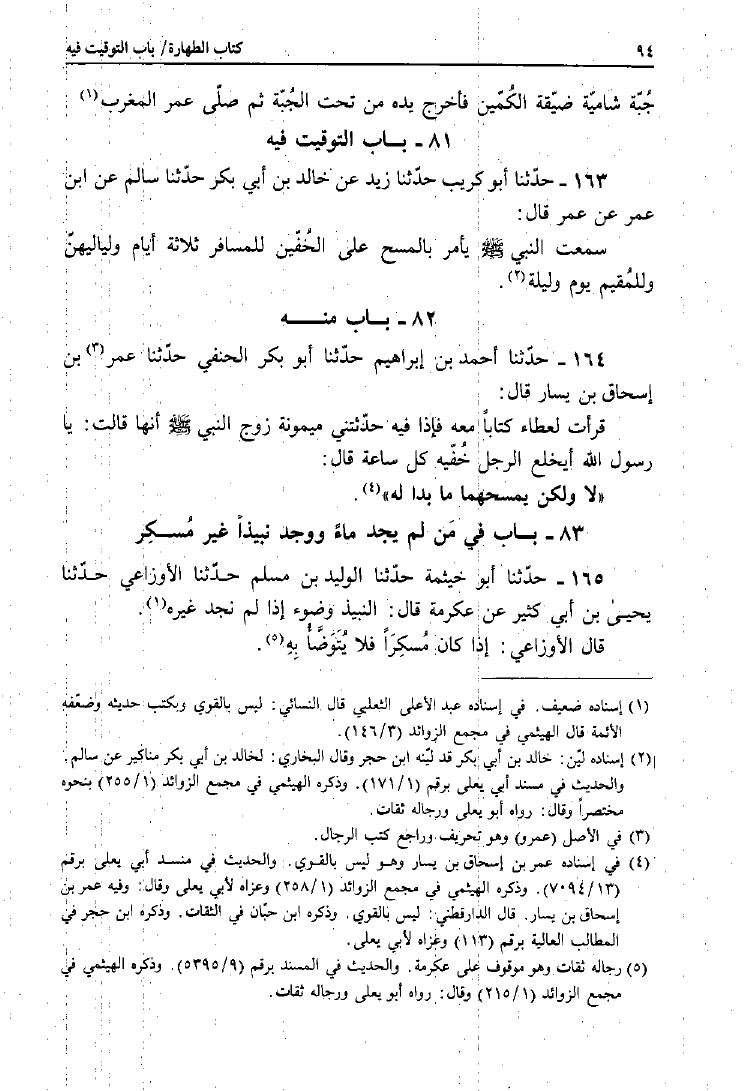 ٩٤ كتاب الطهارة/ باب التوقيت فيه
جُبّة شاميّة ضيّقة الكُمّين فأخرج يده من تحت الجُبّة ثم صلّى عمر المغرب(١)
٨١ ـ بـاب التوقيت فيه
١٦٣ ـ حدّثنا أبو كريب حدّثنا زيد عن خالد بن أبي بكر حدّثنا سالم عن ابن
عمر عن عمر قال:
سمعت النبي ﷺ يأمر بالمسح على الخُفّين للمسافر ثلاثة أيام ولياليهنّ
وللمُقيم يوم وليلة(٢).
٨٢ ـ بـاب منـه
١٦٤ ـ حدّثنا أحمد بن إبراهيم حدّثنا أبو بكر الحنفي حدّثنا عمر(٣) بن
إسحاق بن يسار قال:
قرأت لعطاء كتاباً معه فإذا فيه حدّثتني ميمونة زوج النبي ﷺ أنها قالت: يا
رسول الله أيخلع الرجل خُفّيه كل ساعة قال:
«لا ولكن يمسحهما ما بدا له»(٤).
٨٣ ـ بـاب في مَن لم يجد ماءً ووجد نبيذاً غير مُسكِر
١٦٥ ـ حدّثنا أبو خيثمة حدّثنا الوليد بن مسلم حدّثنا الأوزاعي حدّثنا
يحيىٰ بن أبي كثير عن عكرمة قال: النبيذ وضوء إذا لم نجد غيره(١).
قال الأوزاعي: إذا كان مُسكِرَاً فلا يُتَوَضَّأْ بِهِ(٥).
(١) إسناده ضعيف. في إسناده عبد الأعلى الثعلبي قال النسائي: ليس بالقوي ويكتب حديثه وضعّفه
الأئمة قال الهيثمي في مجمع الزوائد (١٤٦/٣).
(٢) إسناده ليّن: خالد بن أبي بكر قد ليّنه ابن حجر وقال البخاري: لخالد بن أبي بكر مناكير عن سالم.
والحديث في مسند أبي يعلى برقم (١٧١/١). وذكره الهيثمي في مجمع الزوائد (٢٥٥/١) بنحوه
مختصراً وقال: رواه أبو يعلى ورجاله ثقات.
(٣) في الأصل (عمرو) وهو تحريف وراجع كتب الرجال.
(٤) في إسناده عمر بن إسحاق بن يسار وهو ليس بالقوي. والحديث في منسد أبي يعلى برقم
(٧٠٩٤/١٣). وذكره الهيثمي في مجمع الزوائد (٢٥٨/١) وعزاه لأبي يعلى وقال: وفيه عمر بن
إسحاق بن يسار. قال الدارقطني: ليس بالقوي. وذكره ابن حبّان في الثقات. وذكره ابن حجر في
المطالب العالية برقم (١١٣) وعزاه لأبي يعلى.
(٥) رجاله ثقات وهو موقوف على عكرمة. والحديث في المسند برقم (٥٣٩٥/٩). وذكره الهيثمي في
مجمع الزوائد (٢١٥/١) وقال: رواه أبو يعلى ورجاله ثقات.